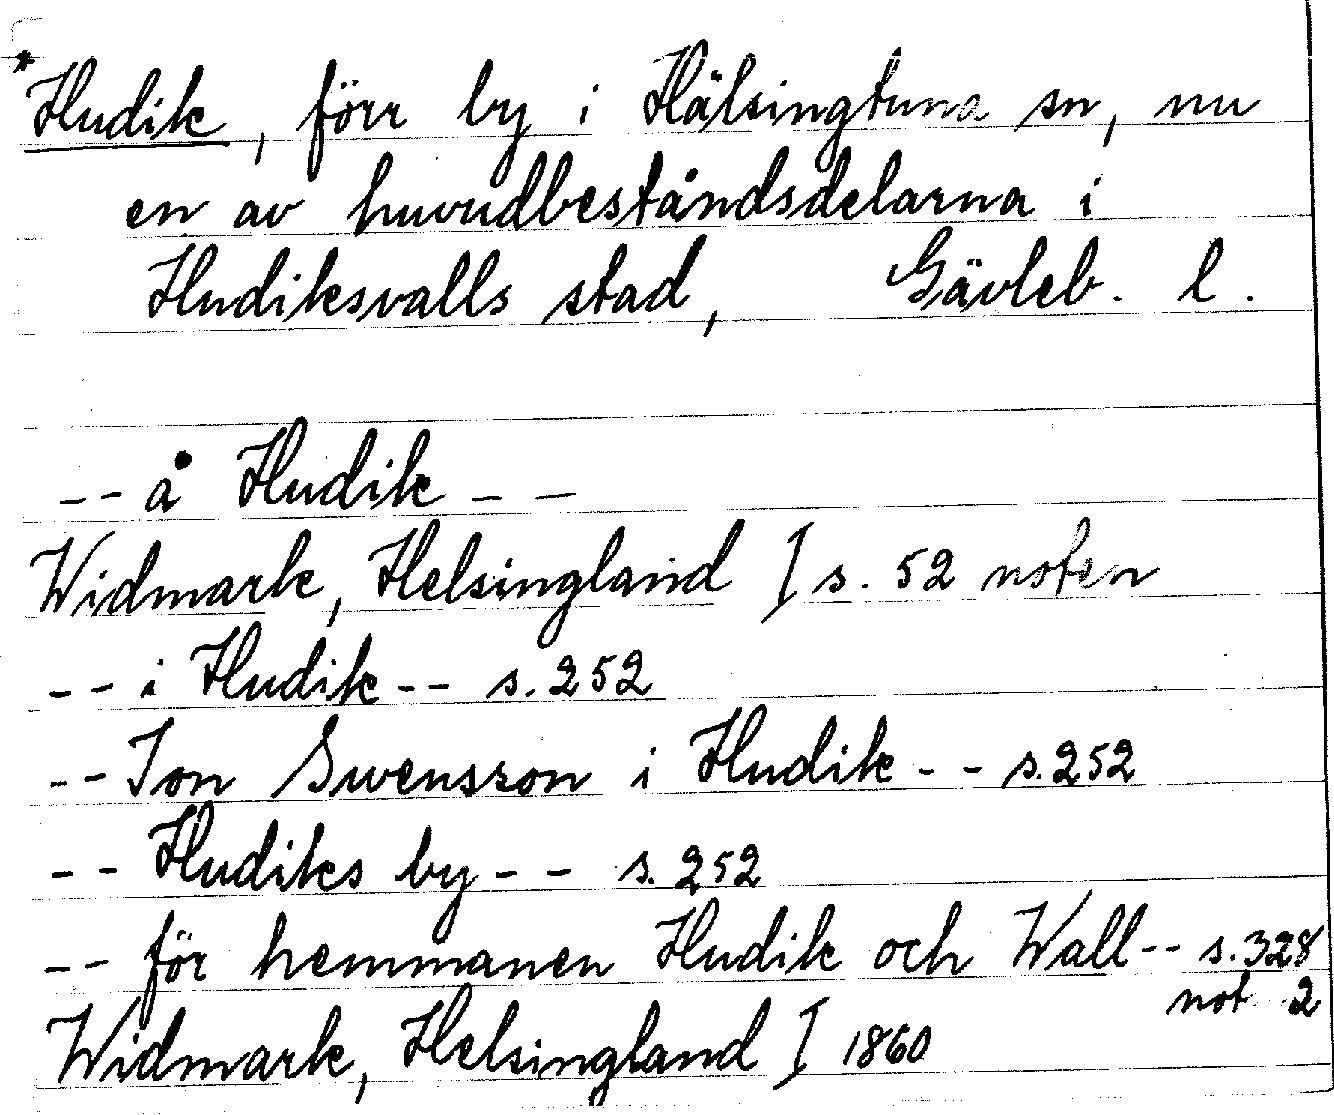 *Hudik, förr by i Hälsingtuna sn, nu
en av huvudbeståndsdelarna i
Hudiksvalls stad, Gävleb. l.
-- å Hudik --
Widmark, Helsingland I s. 52 noten
-- i Hudik -- s. 252
-- Jon Swensson i Hudik -- s. 252
-- Hudiks by -- s. 252
-- för hemmanen Hudik och Wall -- s. 328
not 2
Widmark, Helsingland I 1860